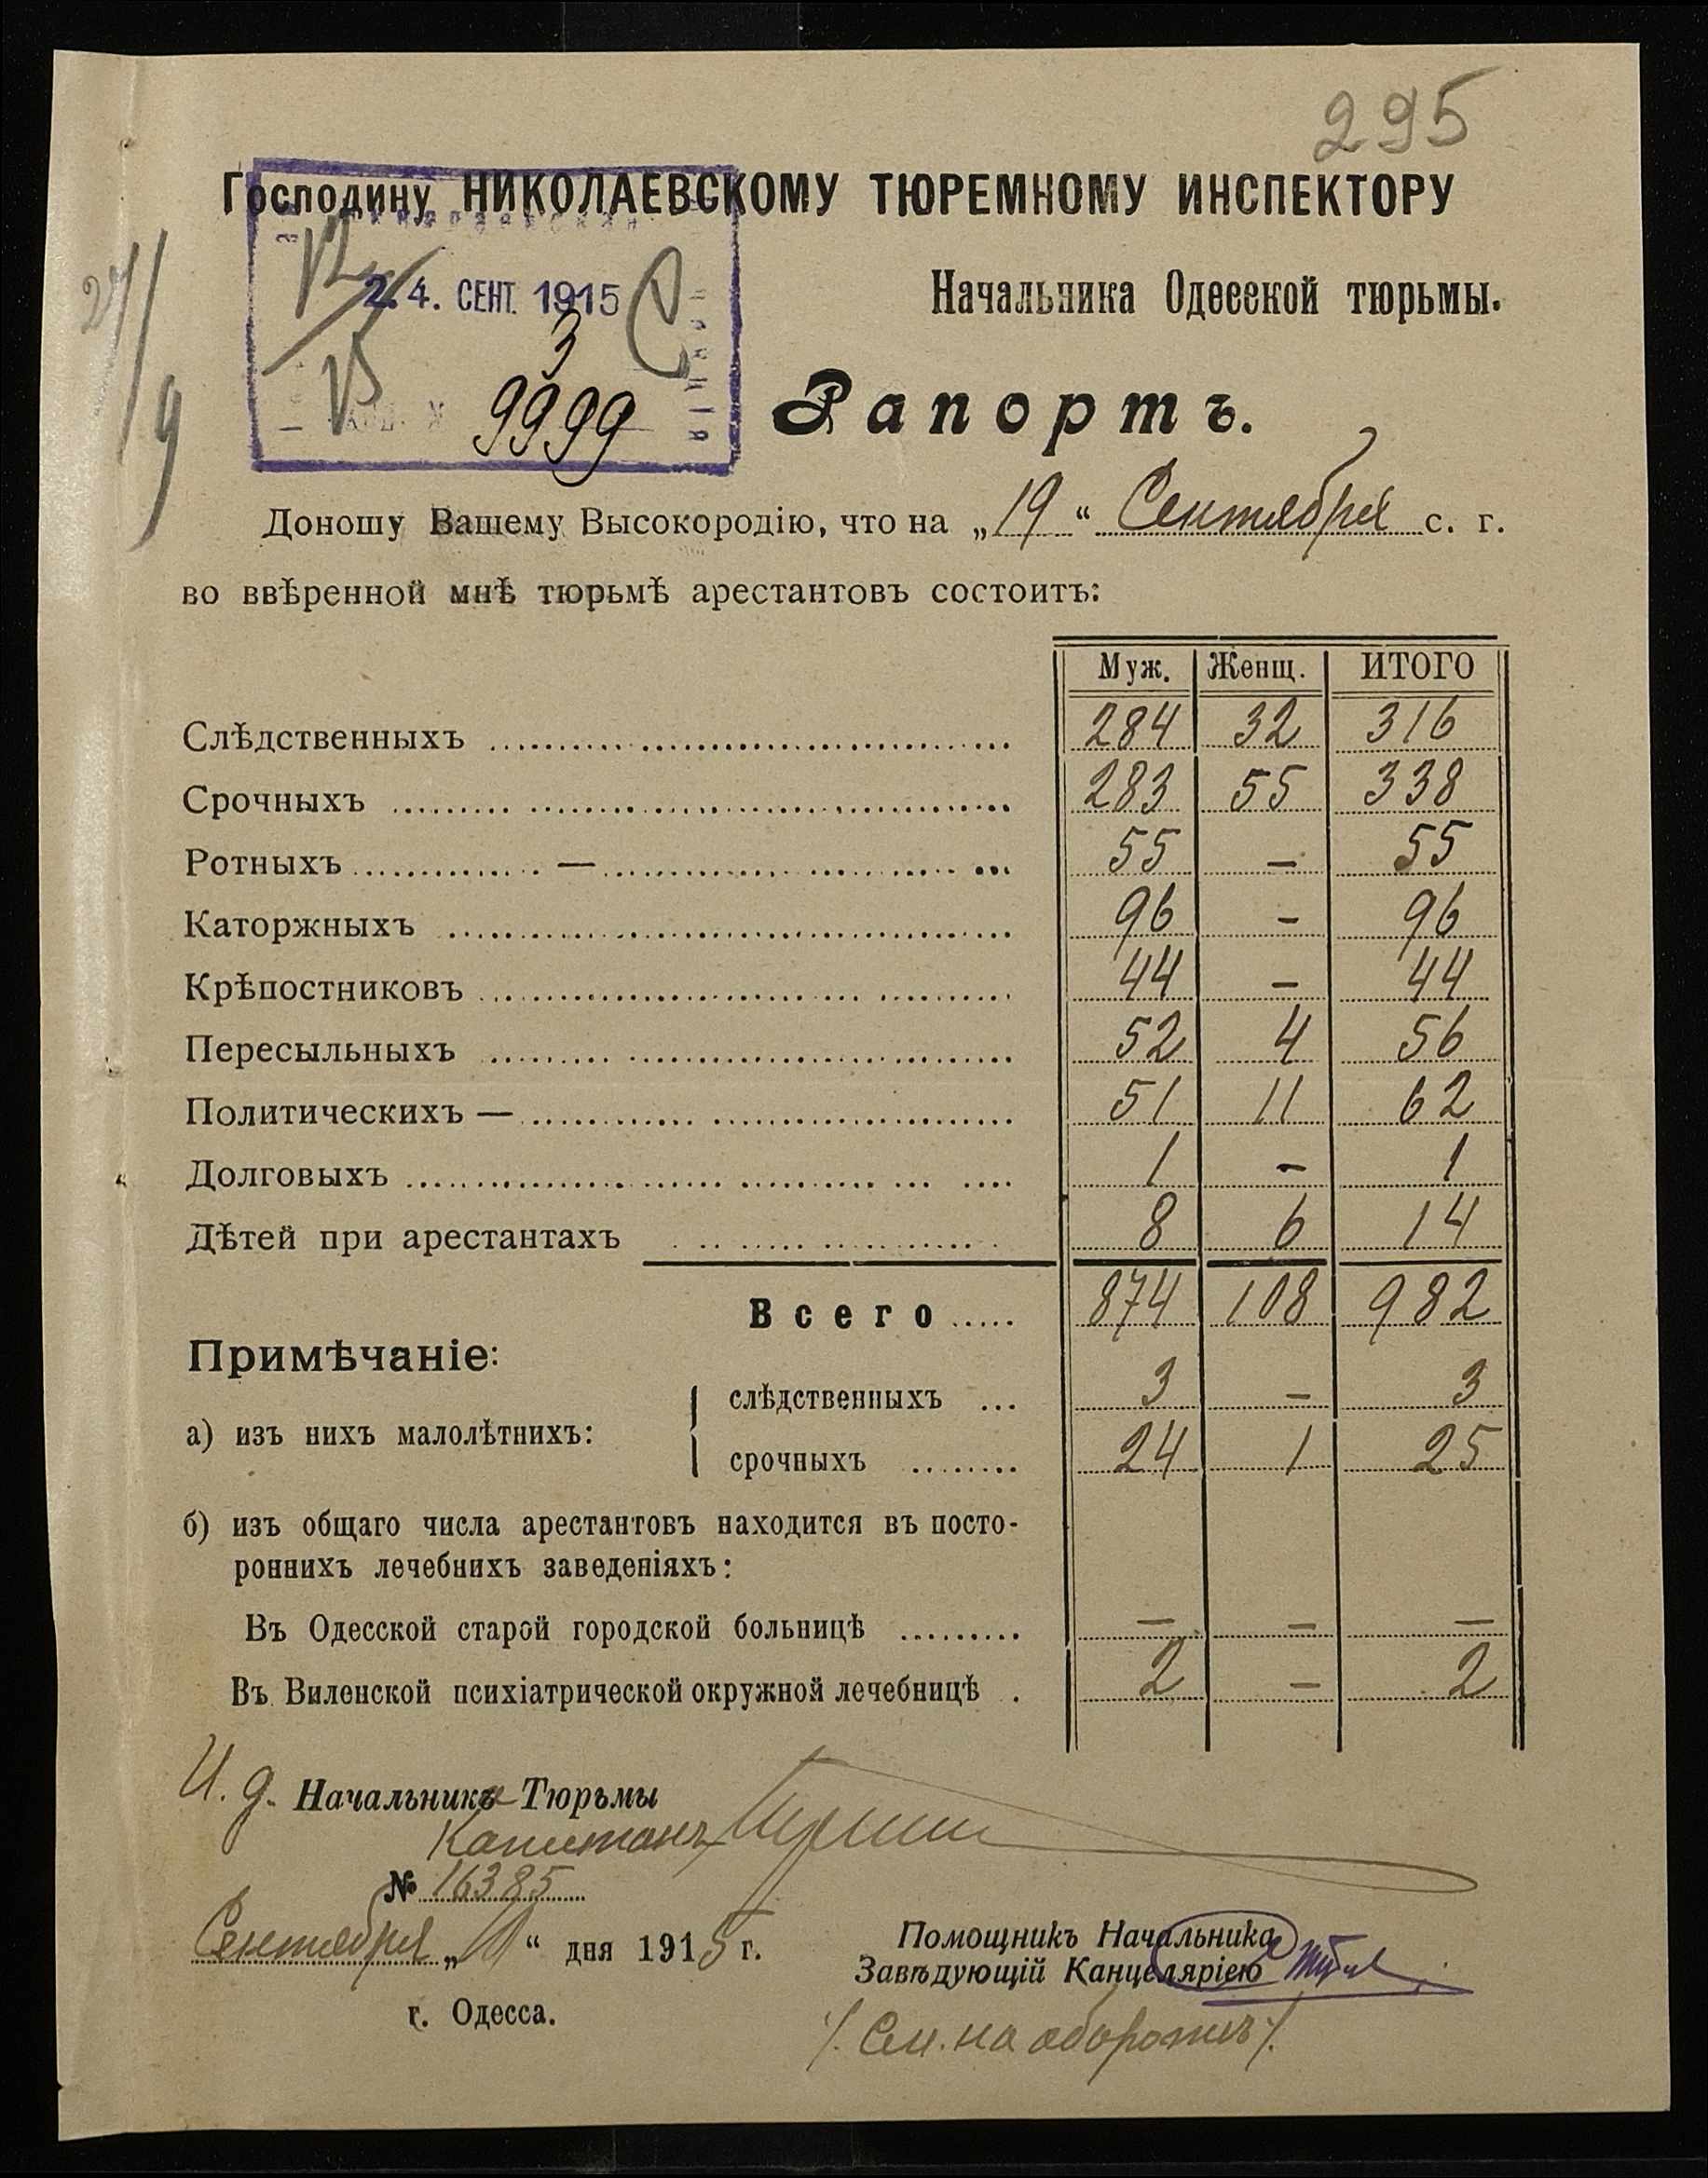 295
Господину НИКОЛАЕВСКОМУ ТЮРЕМНОМУ ИНСПЕКТОРУ
24. СЕНТ. 1915
3
9999
27/9
Начальника Одесской тюрьмы.
Рапортъ.
Доношу Вашему Высокородію, что на „19“ Сентября с. г.
во ввѣренной мнѣ тюрьмѣ арестантовъ состоитъ:
Муж. Женщ. ИТОГО
Слѣдственныхъ 284 32 316
Срочныхъ 283 55 338
Ротныхъ — 55 – 55
Каторжныхъ 96 – 96
Крѣпостниковъ 44 – 44
Пересыльныхъ 52 4 56
Политическихъ — 51 11 62
Долговыхъ 1 – 1
Дѣтей при арестантахъ 8 6 14
Всего 874 108 982
Примѣчаніе:
а) изъ нихъ малолѣтнихъ:
слѣдственныхъ 3 – 3
срочныхъ 24 1 25
б) изъ общаго числа арестантовъ находится въ посто-
роннихъ лечебнихъ заведеніяхъ:
Въ Одесской старой городской больницѣ – – –
Въ Виленской психіатрической окружной лечебницѣ 2 – 2
И. д. Начальника Тюрьмы
Капитанъ
№ 16385
Сентября „ “ дня 1915 г.
г. Одесса.
Помощникъ Начальника
Завѣдующій Канцеляріею
/. См. на оборотѣ /.